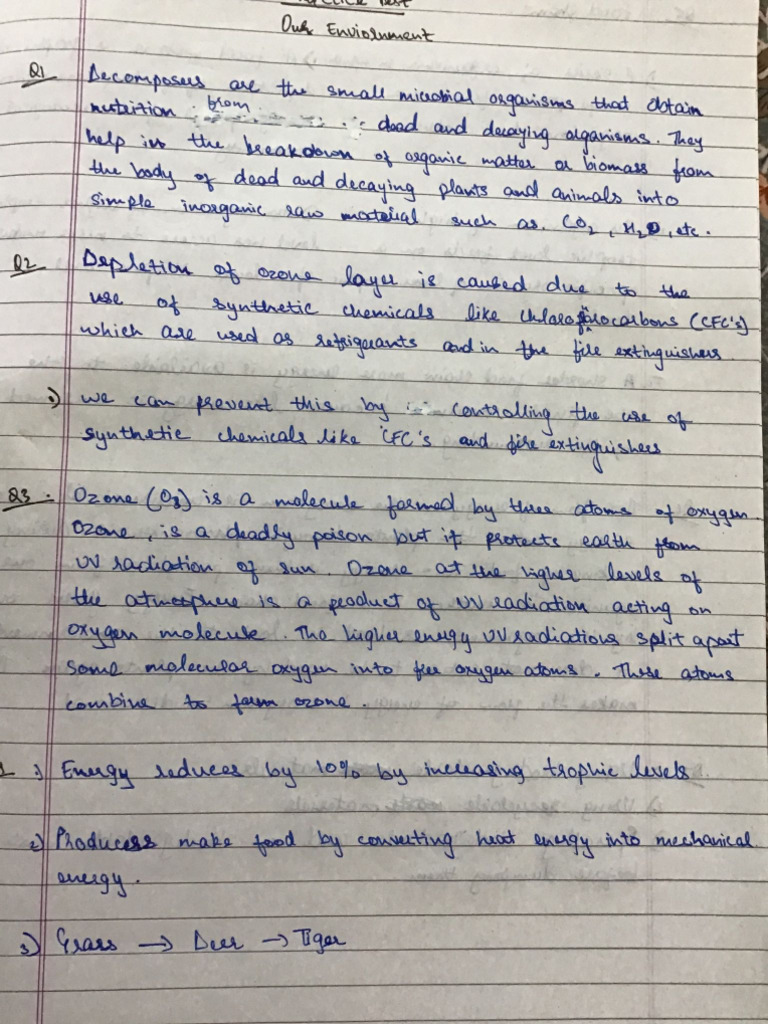 Our Enviornment
Q1 Decomposers are the small microbial organisms that obtain
nutrition from dead and decaying organisms. They
help in the breakdown of organic matter or biomass from
the body of dead and decaying plants and animals into
simple inorganic raw material such as CO2, H2O, etc.
Q2 Depletion of ozone layer is caused due to the
use of synthetic chemicals like chlorofluorocarbons (CFC's)
which are used as refrigerants and in the fire extinguishers
1) we can prevent this by controlling the use of
synthetic chemicals like CFC's and fire extinguishers
Q3. Ozone (O3) is a molecule formed by three atoms of oxygen
Ozone, is a deadly poison but it protects earth from
UV radiation of sun. Ozone at the higher levels of
the atmosphere is a product of UV radiation acting on
oxygen molecule. The higher energy UV radiations split apart
some molecular oxygen into free oxygen atoms. These atoms
combine to form ozone.
1) Energy reduces by 10% by increasing trophic levels
2) Producers make food by converting heat energy into mechanical
energy.
3) Grass → Deer → Tiger